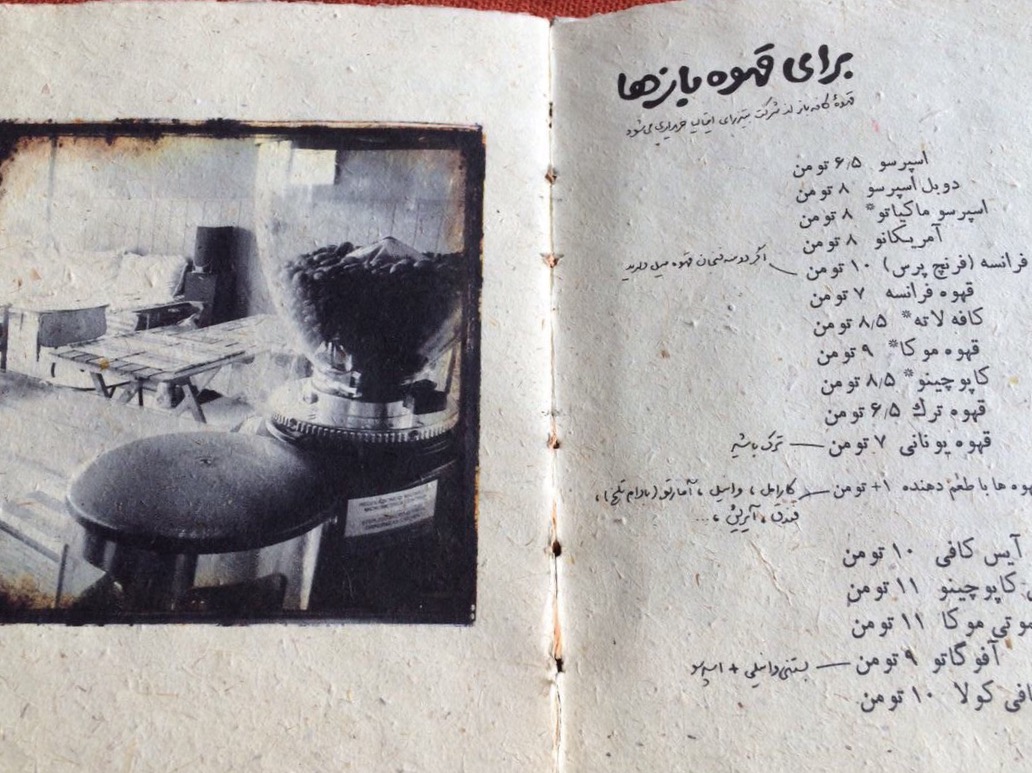 برای قهوه بازها
قهوهٔ کافه باز از شرکت ویتوریای ایتالیا خریداری می‌شود
اسپرسو ۶٫۵ تومن
دوبل اسپرسو ۸ تومن
اسپرسو ماکیاتو* ۸ تومن
آمریکانو ۸ تومن
فرانسه (فرنچ پرس) ۱۰ تومن — اگر دو سه فنجان قهوه میل دارید
قهوه فرانسه ۷ تومن
کافه لاته* ۸٫۵ تومن
قهوه موکا* ۹ تومن
کاپوچینو* ۸٫۵ تومن
قهوه ترک ۶٫۵ تومن
قهوه یونانی ۷ تومن — ترک باشیر
هوه ها با طعم دهنده ۱+ تومن — کارامل ، وانیل ، آمارتو (بادام تلخ) ،
فندق ، آیریش ، ...
آیس کافی ۱۰ تومن
کاپوچینو ۱۱ تومن
موتی موکا ۱۱ تومن
آفوگاتو ۹ تومن — بستنی وانیلی + اسپرسو
افی کولا ۱۰ تومن